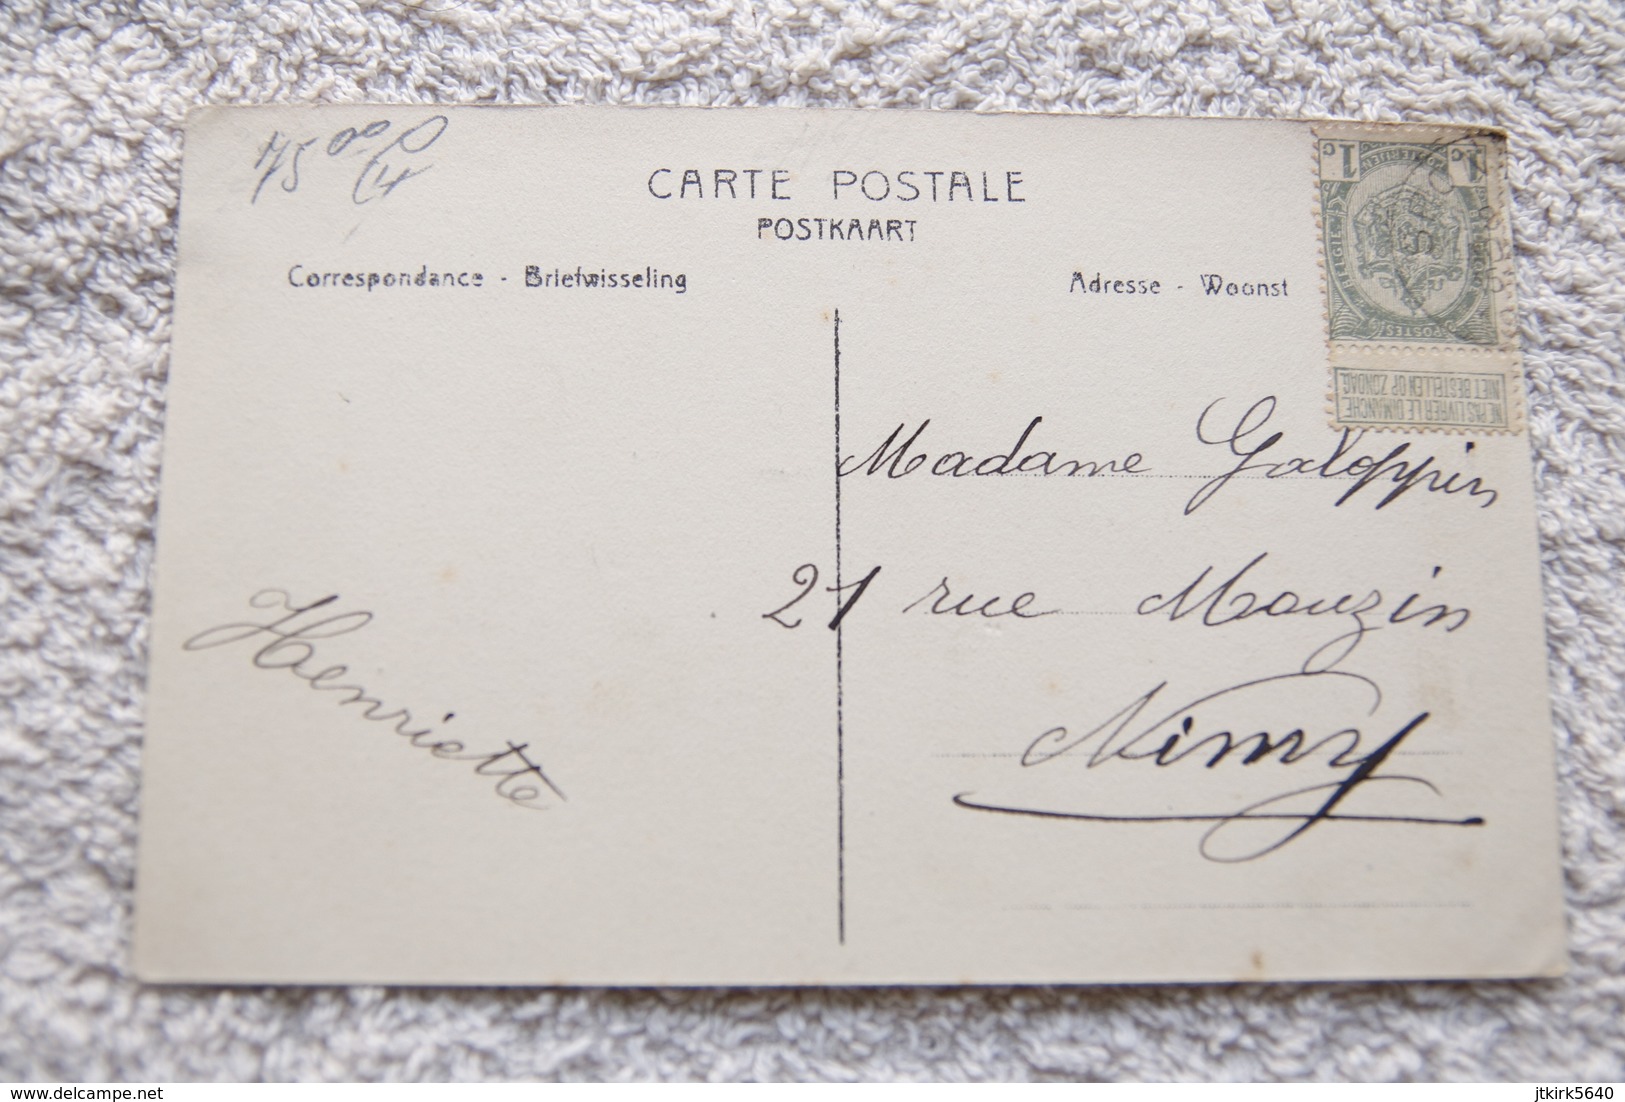 7500
CARTE POSTALE
POSTKAART
Correspondance - Briefwisseling
Adresse - Woonst
1c 1c
POSTERIJEN
BELGIE
BELGIQUE
POSTES
NIET BESTELLEN OP ZONDAG
NE PAS LIVRER LE DIMANCHE
Madame Galoppin
21 rue Mouzin
Nimy
Henriette
delcampe.net
jtkirk5640